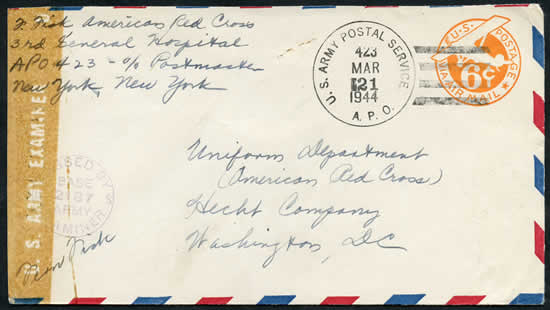 F. Fisk American Red Cross
3rd General Hospital
APO 423 - c/o Postmaster
New York, New York
U.S. ARMY POSTAL SERVICE
423
MAR
21
1944
A. P. O.
U.S. POSTAGE
6¢
VIA AIR MAIL
U. S. ARMY EXAMINE
SED BY
BASE
2187
ARMY
MINER
Fisk
Uniform Department
(American Red Cross)
Hecht Company
Washington, DC